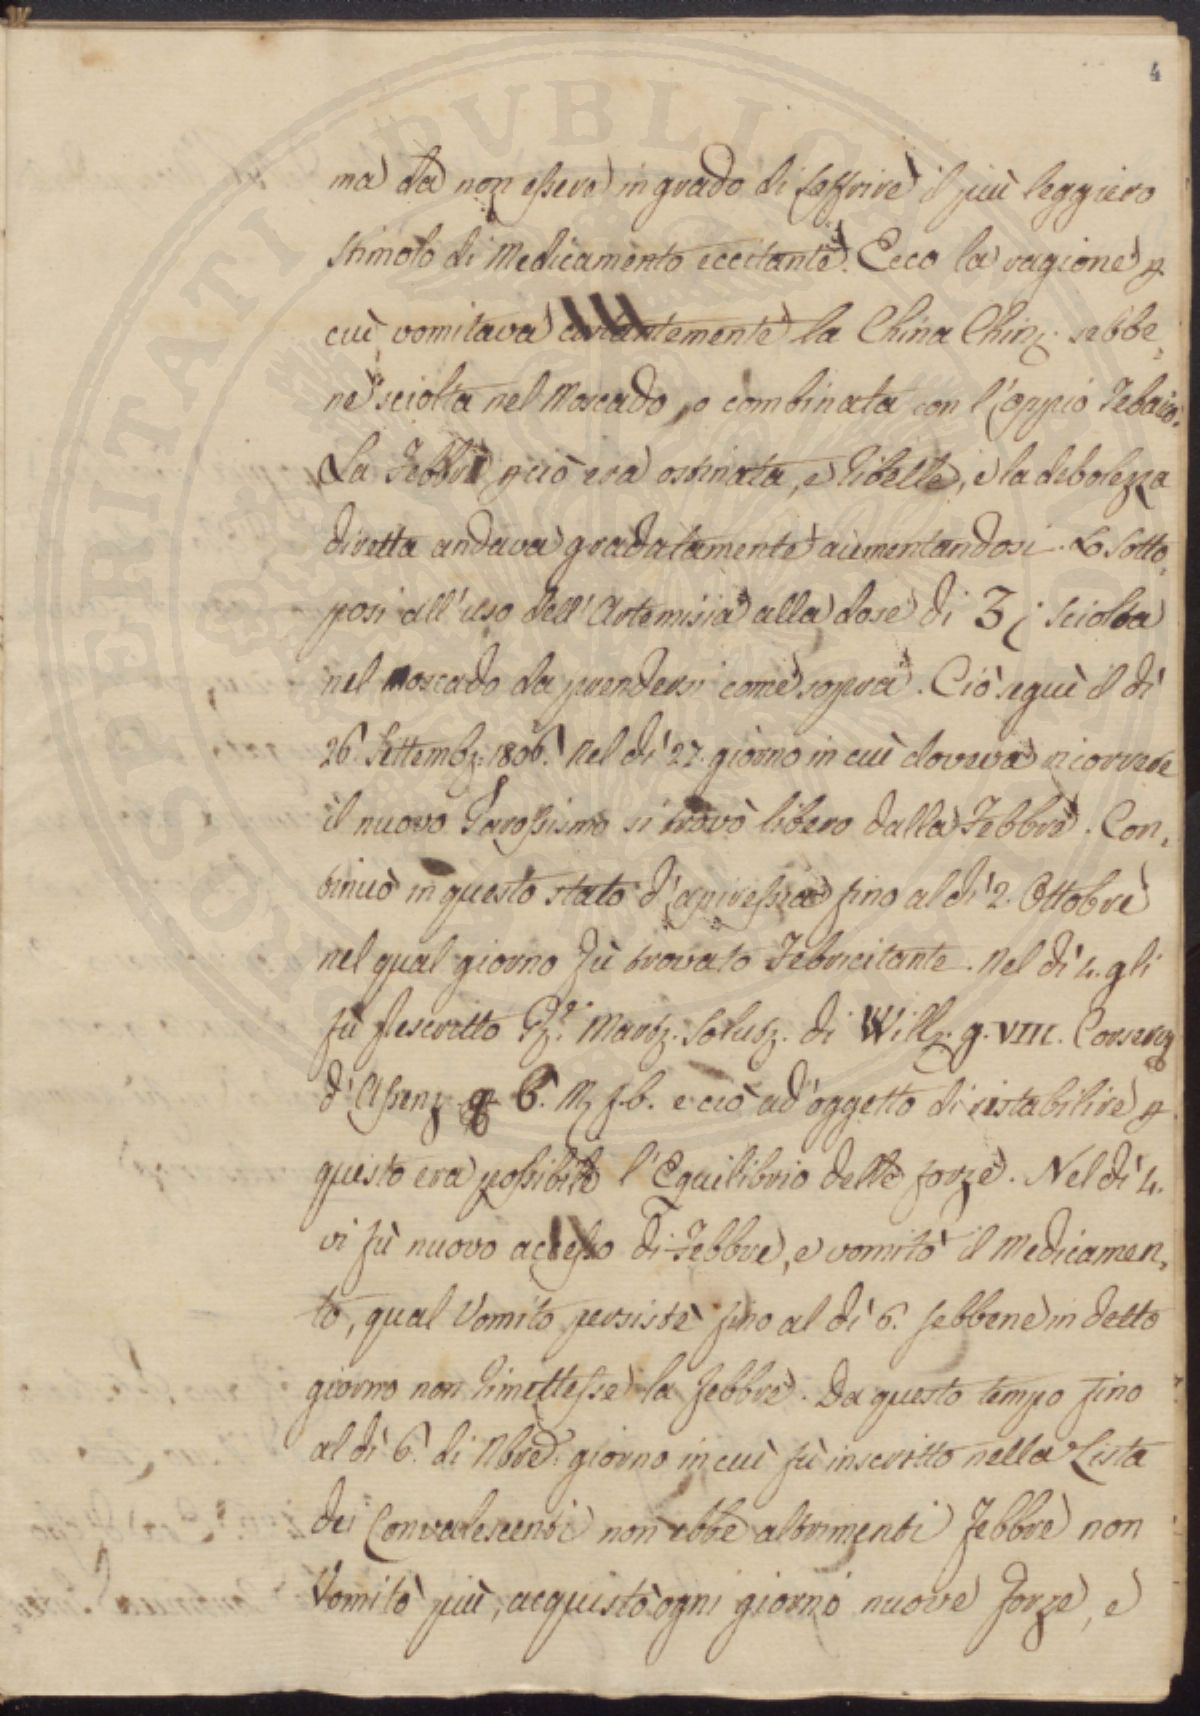 4
ma da non essere in grado di soffrire il più leggiero
stimolo di Medicamento eccitante. Ecco la ragione p.
cui vomitava costantemente la China Chin: sebbe,
ne sciolta nel Moscado, o combinata con l'oppio Tebaico.
La Febbre p ciò era ostinata, e ribelle, e la debolezza
diretta andava gradatamente aumentandosi. Lo sotto,
posi all'uso dell'Artemisia alla dose di Ʒj sciolta
nel moscado da prendersi come sopra. Ciò seguì il dì
26. Settemb. 1806. Nel dì 27. giorno in cui doveva ricorrere
il nuovo Parossismo si trovò libero dalla Febbre. Con,
tinuò in questo stato d'apiressia fino al dì 2. Ottobre
nel qual giorno fù trovato Febricitante. Nel dì 4. gli
fù prescritto Mart. Solub. di Will. g. VIII. Conserv
d'Assenz. q 6. M. f. b. e ciò ad'oggetto di ristabilire p.
questo era possibile l'Equilibrio delle forze. Nel dì 4.
vi fù nuovo accesso di Febbre, e vomitò il Medicamen,
to, qual Vomito persistè fino al dì 6. sebbene in detto
giorno non rimettesse la febbre. Da questo tempo fino
al dì 6. di Nbre. giorno in cui fù inscritto nella Lista
dei Convalescenti non ebbe altrimenti Febbre non
Vomitò più, acquistò ogni giorno nuove forze, e
PROSPERITATI PVBLICAE